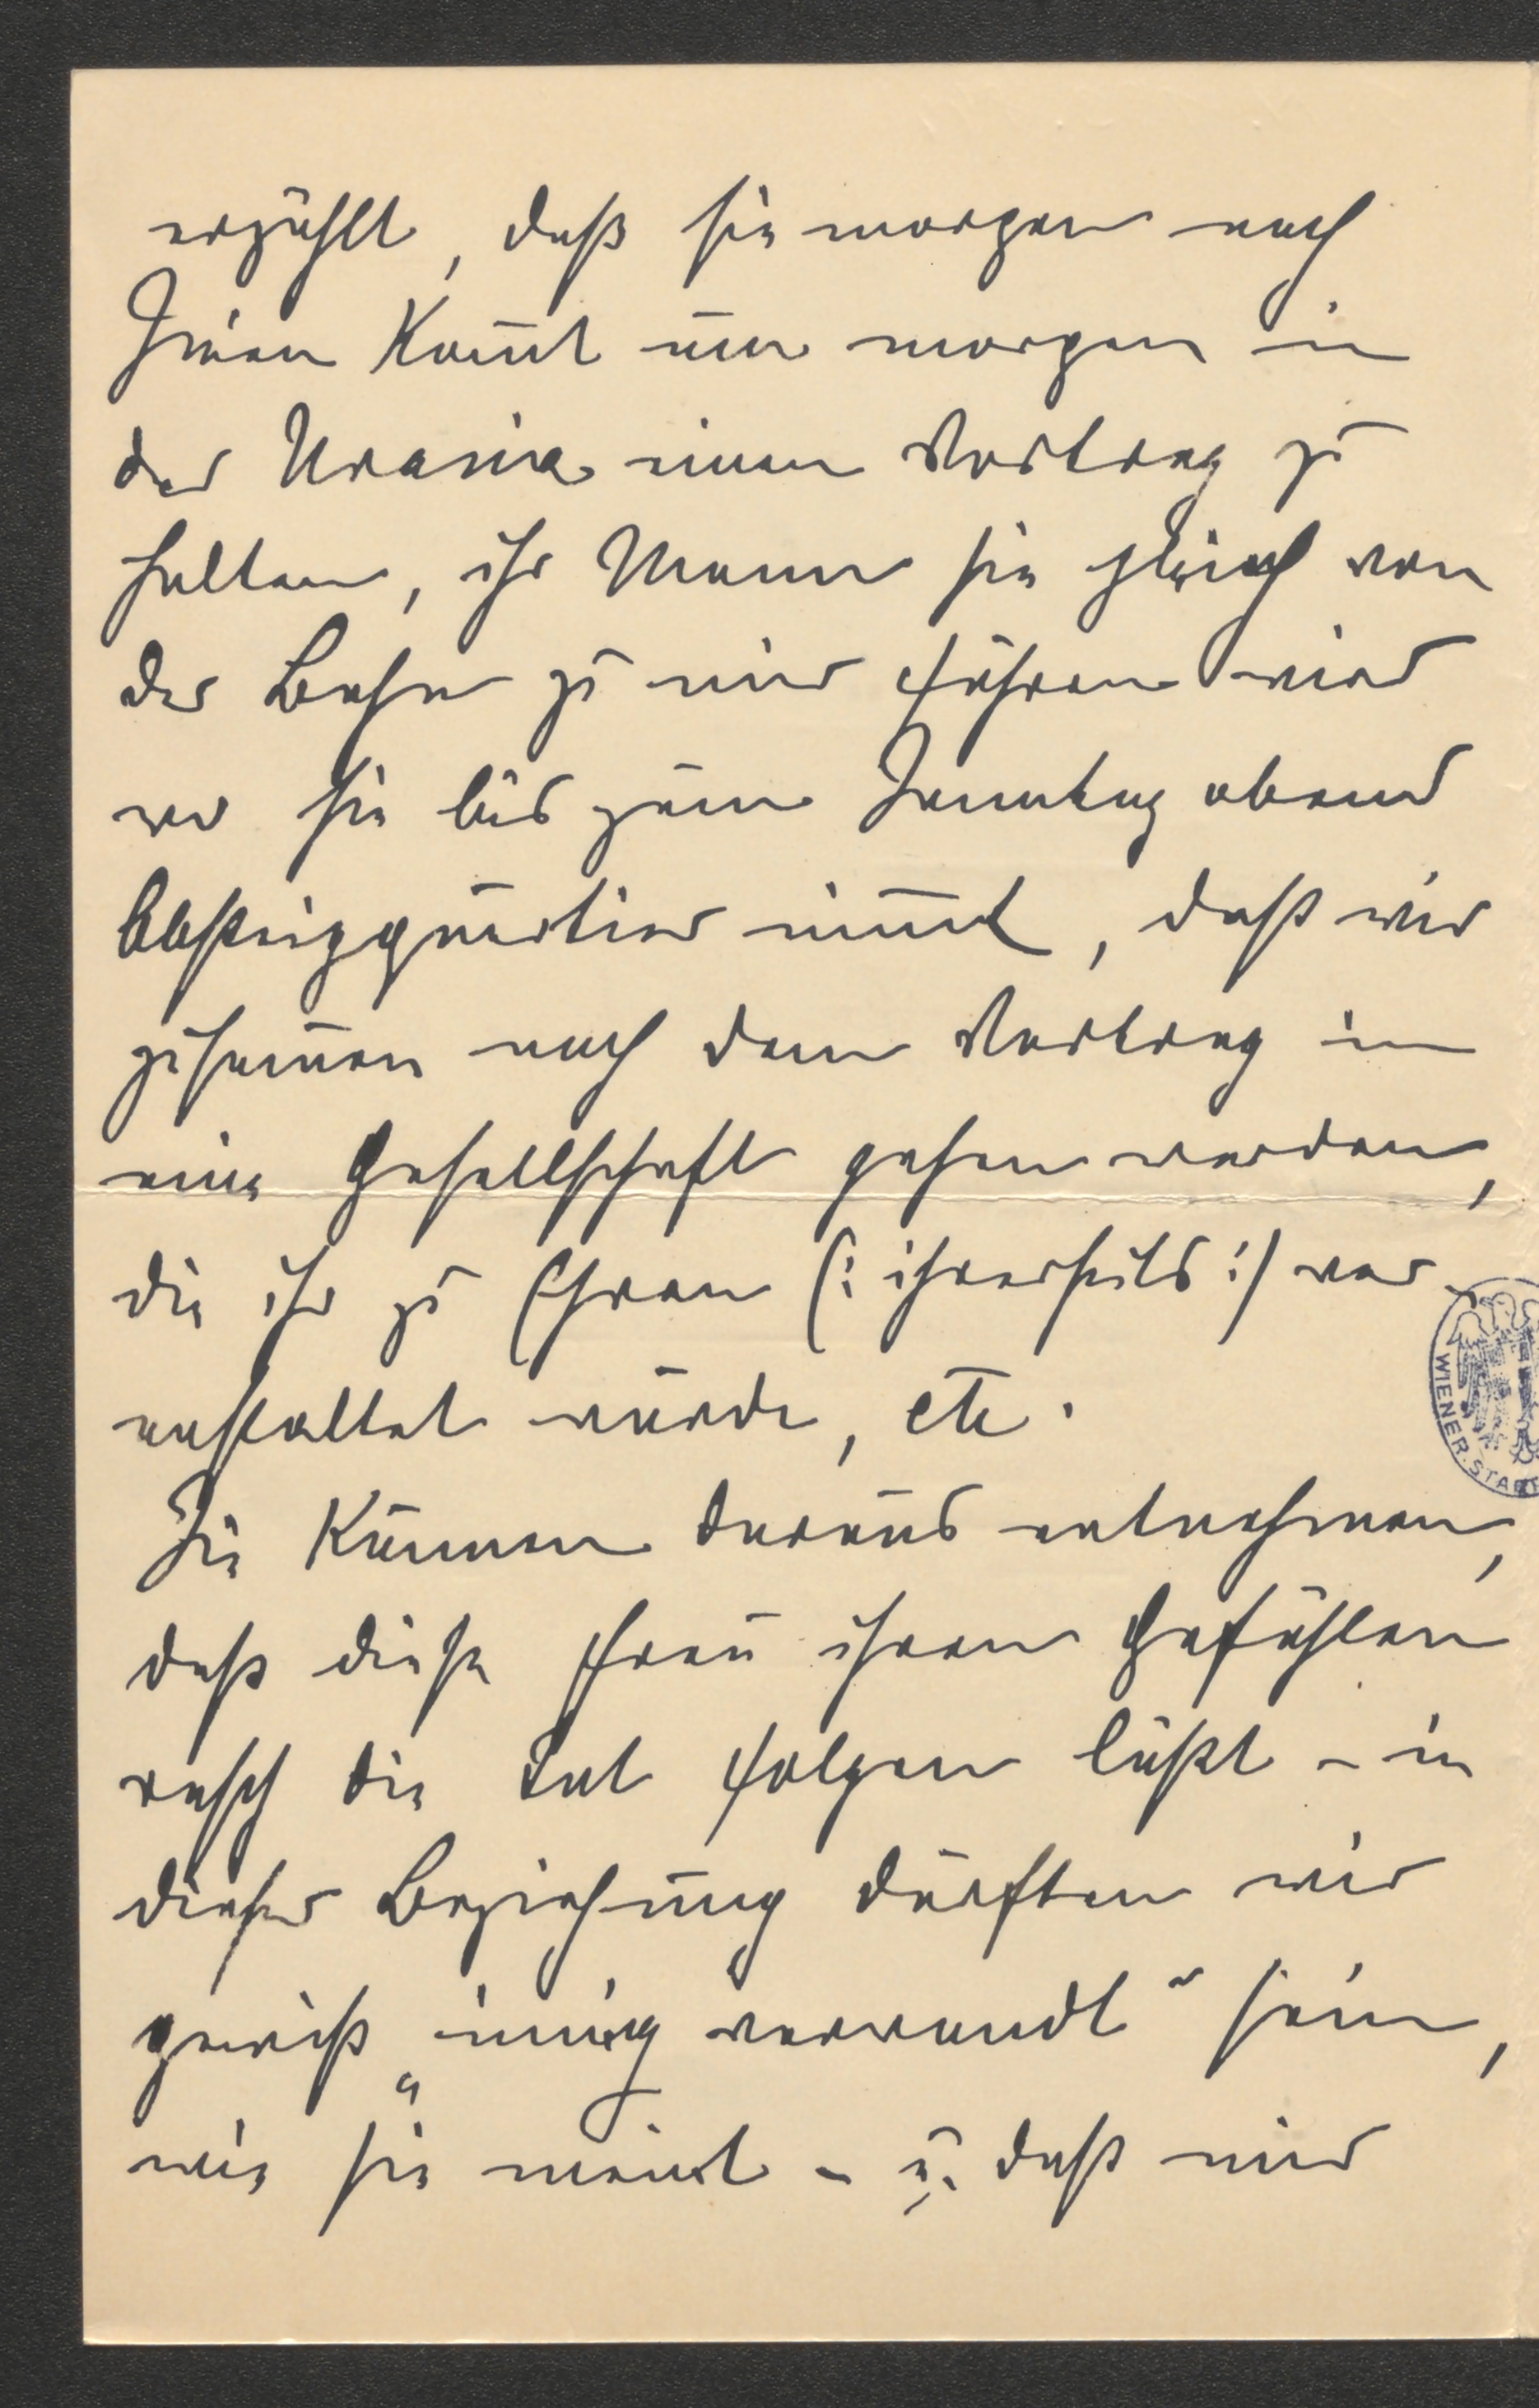 erzählt, daß sie morgen nach
Wien kom̅t um morgen in
der Urania einen Vortrag zu
halten, ihr Mann sie gleich von
der Bahn zu mir führen wird
wo sie bis zum Sonntag abend
Absteigquartier nim̅t, daß wir
zusam̅en nach dem Vortrag in
eine Gesellschaft gehen werden,
die ihr zu Ehren (: ihrerseits :) ver-
anstaltet wurde, etc.
Sie können daraus entnehmen,
daß diese Frau ihren Gefühlen
rasch die Tat folgen läßt – in
dieser Beziehung dürften wir
gewiß „innig verwandt“ sein,
wie sie meint – u. daß mir
WIENER STADT